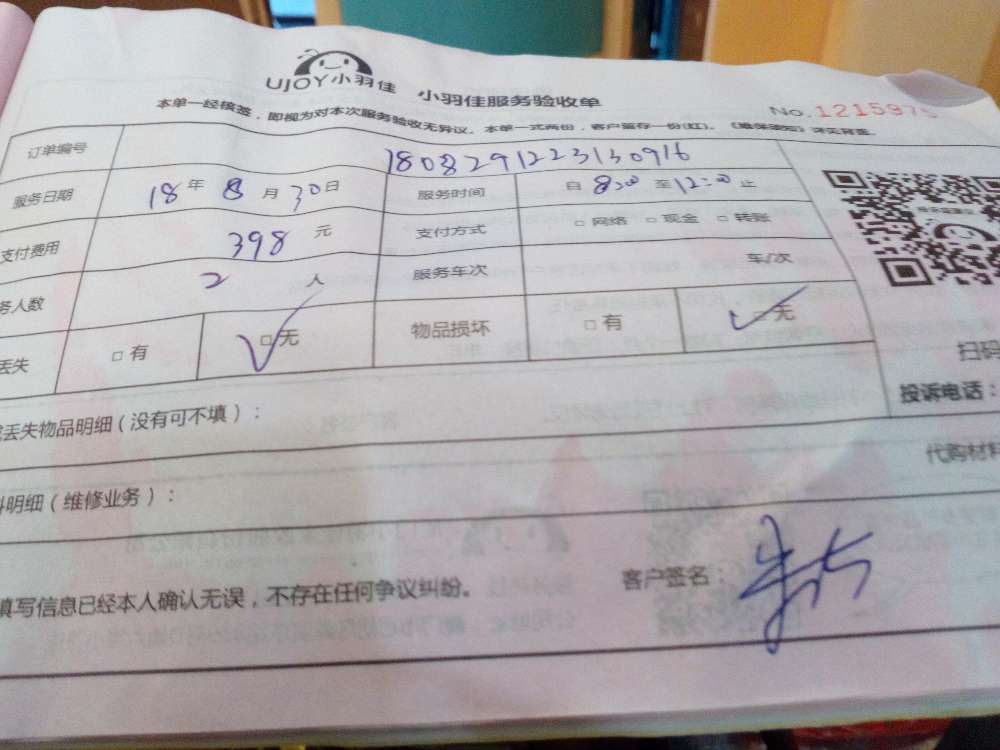 UJOY小羽佳 小羽佳服务验收单
No.1215975
本单一经核签，即视为对本次服务验收无异议。本单一式两份，客户留存一份(红)。《维保须知》详见背面。
订单编号 1808291223130916
服务日期 18年8月30日 服务时间 自8:30至12:00止
支付费用 398元 支付方式 □网络 □现金 □转账
务人数 2人 服务车次 车/次
丢失 □有 □无 物品损坏 □有 □无
扫码
投诉电话：
丢失物品明细（没有可不填）：
代购材料
料明细（维修业务）：
填写信息已经本人确认无误，不存在任何争议纠纷。 客户签名：